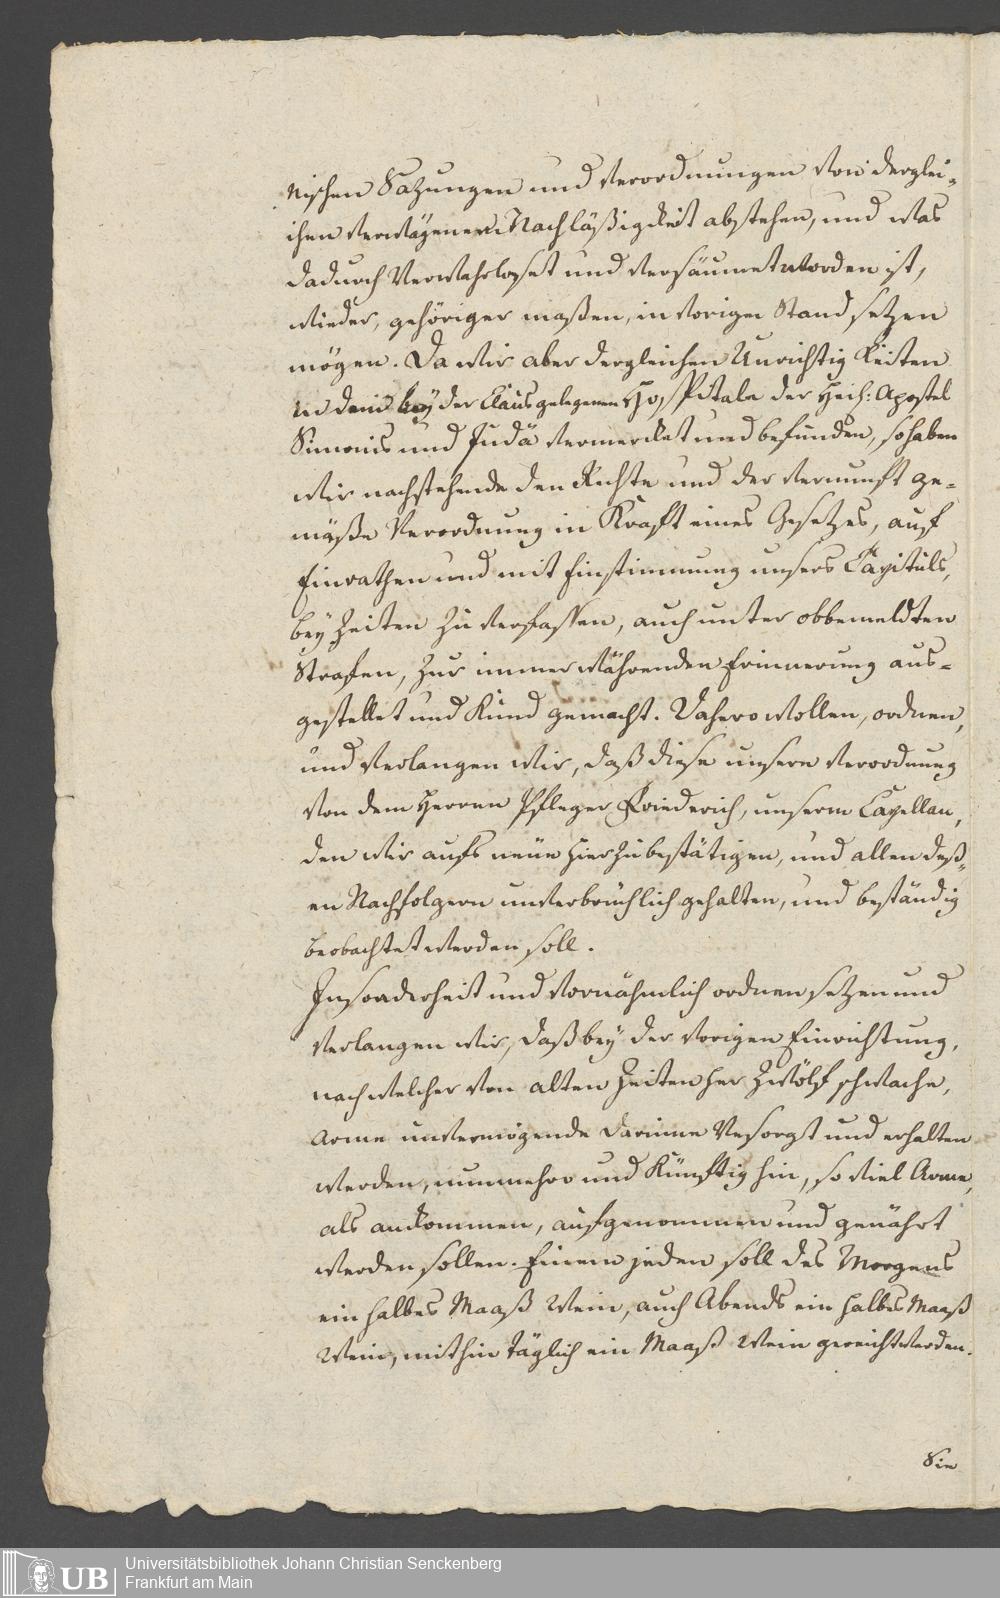 nischen Sazungen und Verordnungen von derglei-
chen verwägenern Nachläßigkeit abstehen, und was
dadurch Verwahrloset und versäumet worden ist,
wieder, gehöriger maßen, in vorigen Stand setzen
mögen. Da wir aber dergleichen Unrichtig keiten
in dem bey der Claus gelegenen Hosspitale der Heil: Apostel
Simonis und Judä vermerket und befunden, so haben
wir nachstehende den Rechte und der vernunft ge-
mäße Verordnung in Kraft eines Gesetzes, auf
Einrathen und mit Einstimmung unsers Capituls,
bey Zeiten zu verfassen, auch unter obbemeldten
Strafen, zur immer währenden Erinnerung aus-
gestellet und Kund gemacht. Dahero wollen, ordnen,
und verlangen wir, daß diese unsere verordnung
von dem Herren Pfleger Friederich, unserm Capellan,
den wir aufs neue hierzu bestätigen, und allen deß-
en Nachfolgern unverbrüchlich gehalten, und beständig
beobachtet werden soll.
Insonderheit und vornähmlich ordnen setzen und
verlangen wir, daß bey der vorigen Einrichtung,
nach welcher von alten Zeiten her zwölf schwache,
Arme unvermögende darinne Vesorgt und erhalten
werden, nunmehro und Künftig hin, so viel Arme,
als ankommen, aufgenommen und genährt
werden sollen. Einem jeden soll des Morgens
ein halbes Maaß Wein, auch Abends ein halbes Maaß
Wein, mithin täglich ein Maaß Wein gereicht werden.
Sie
UB Universitätsbibliothek Johann Christian Senckenberg
Frankfurt am Main